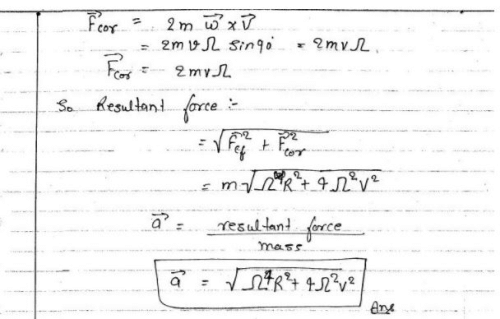 F⃗cor = 2m ω⃗ x v⃗
= 2m v Ω sin90° = 2mvΩ.
F⃗cor = 2mvΩ
So Resultant force :-
= √(F⃗cf² + F⃗cor²)
= m√(Ω⁴R² + 4Ω²V²)
a⃗ = resultant force
mass
a⃗ = √(Ω⁴R² + 4Ω²V²)
Ans